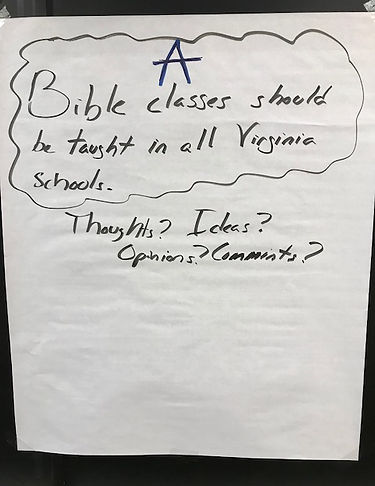 A
Bible classes should
be taught in all Virginia
Schools.
Thoughts? Ideas?
Opinions? Commints?